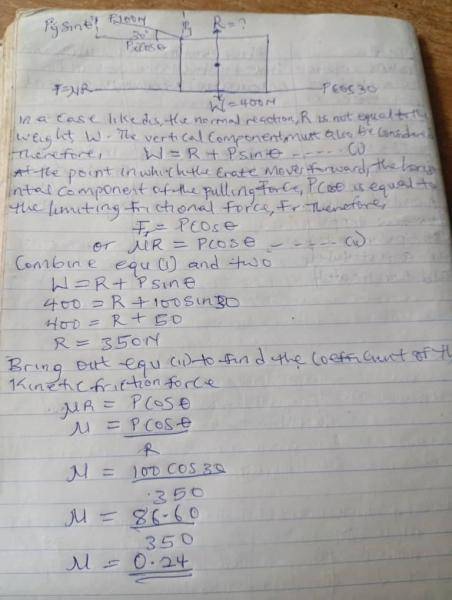 Pysinθ P=100N R=?
30°
Pcosθ
F=μR Pcos30
W=400N
in a case like dis, the normal reaction, R is not equal to the
weight W. The vertical component must also be considered
Therefore, W = R + Psinθ ----- (i)
At the point in which the crate moves forward, the horizo
ntal component of the pulling force, Pcosθ is equal to
the limiting frictional force, Fr Therefore,
Fr = Pcosθ
or μR = Pcosθ ----- (ii)
Combine equ (i) and two
W = R + Psinθ
400 = R + 100sin30
400 = R + 50
R = 350N
Bring out equ (ii) to find the coefficient of the
Kinetic friction force
μR = Pcosθ
μ = Pcosθ
R
μ = 100cos30
350
μ = 86.60
350
μ = 0.24